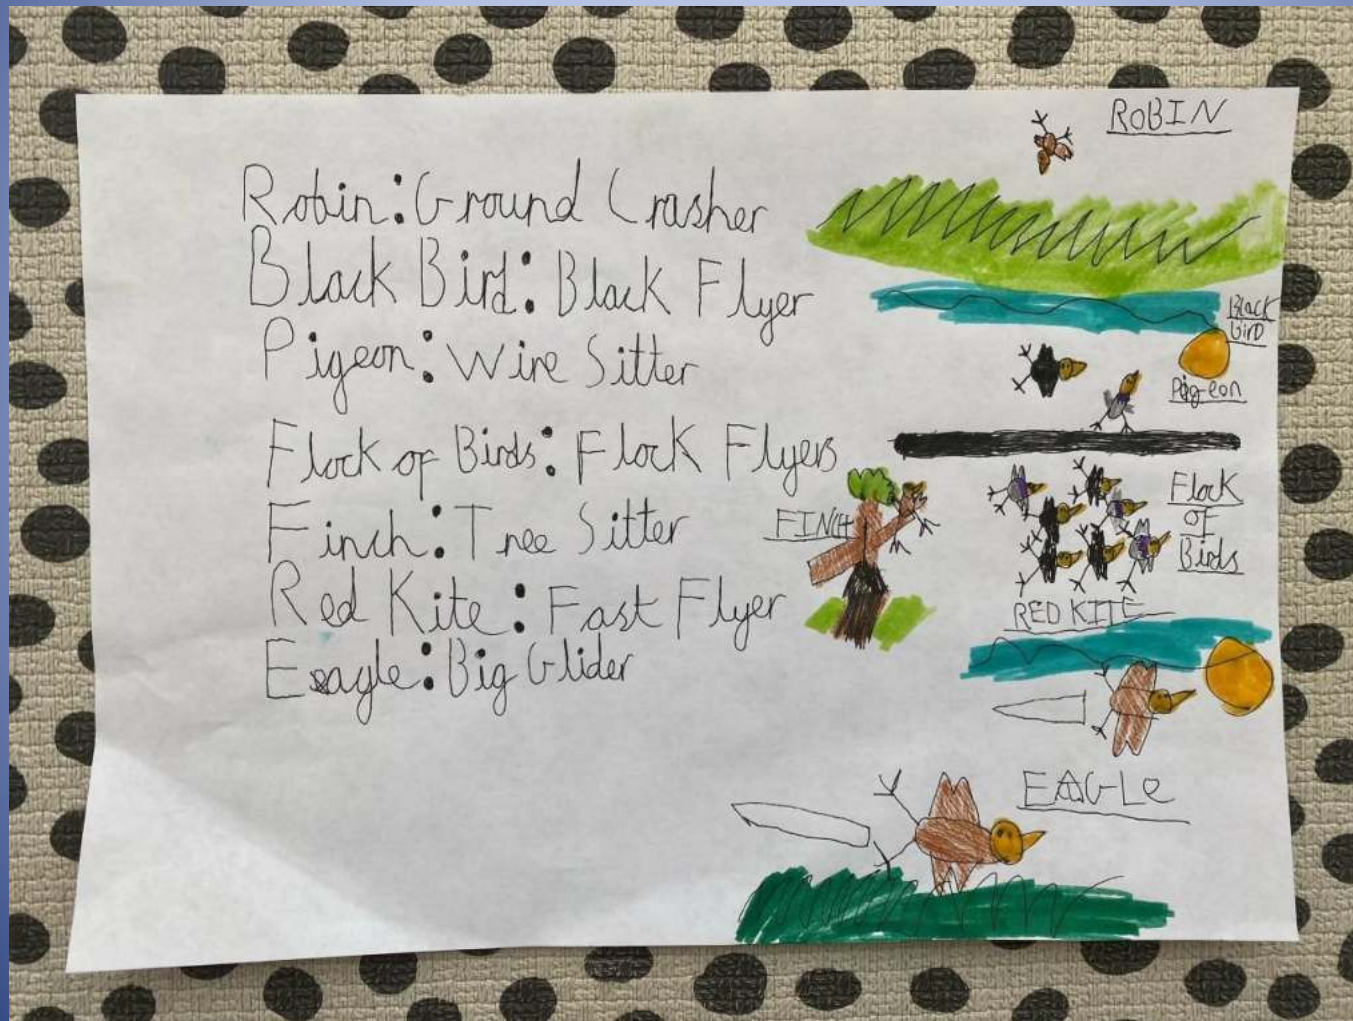 Robin: Ground Crasher
Black Bird: Black Flyer
Pigeon: Wire Sitter
Flock of Birds: Flock Flyers
Finch: Tree Sitter
Red Kite: Fast Flyer
Eagle: Big Glider
ROBIN
Black
birD
Pigeon
Flock
OF
Birds
FINCH
RED KITE
EAGLe